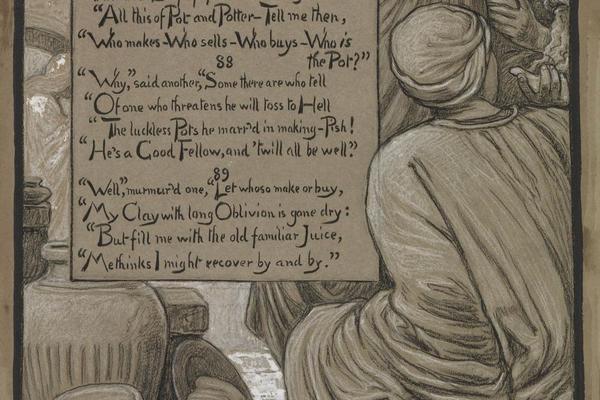 “All this of Pot and Potter—Tell me then,
“Who makes—Who sells—Who buys—Who is
the Pot?”
88
“Why,” said another, “Some there are who tell
“Of one who threatens he will toss to Hell
“The luckless Pots he marr'd in making—Pish!
“He's a Good Fellow, and 'twill all be well.”
89
“Well,” murmur'd one, “Let whoso make or buy,
“My Clay with long Oblivion is gone dry:
“But fill me with the old familiar Juice,
“Methinks I might recover by and by.”